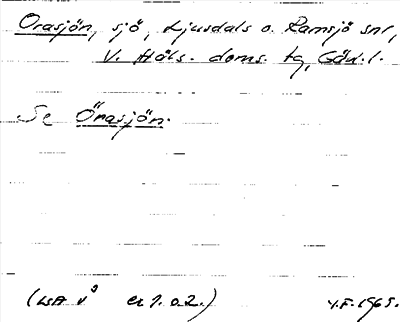 Orasjön, sjö, Ljusdals o. Ramsjö snr,
V. Häls. doms. tg, Gävl. l.
Se Örasjön.
(LSA V³ er 1. o. 2.) Y.F. 1965.